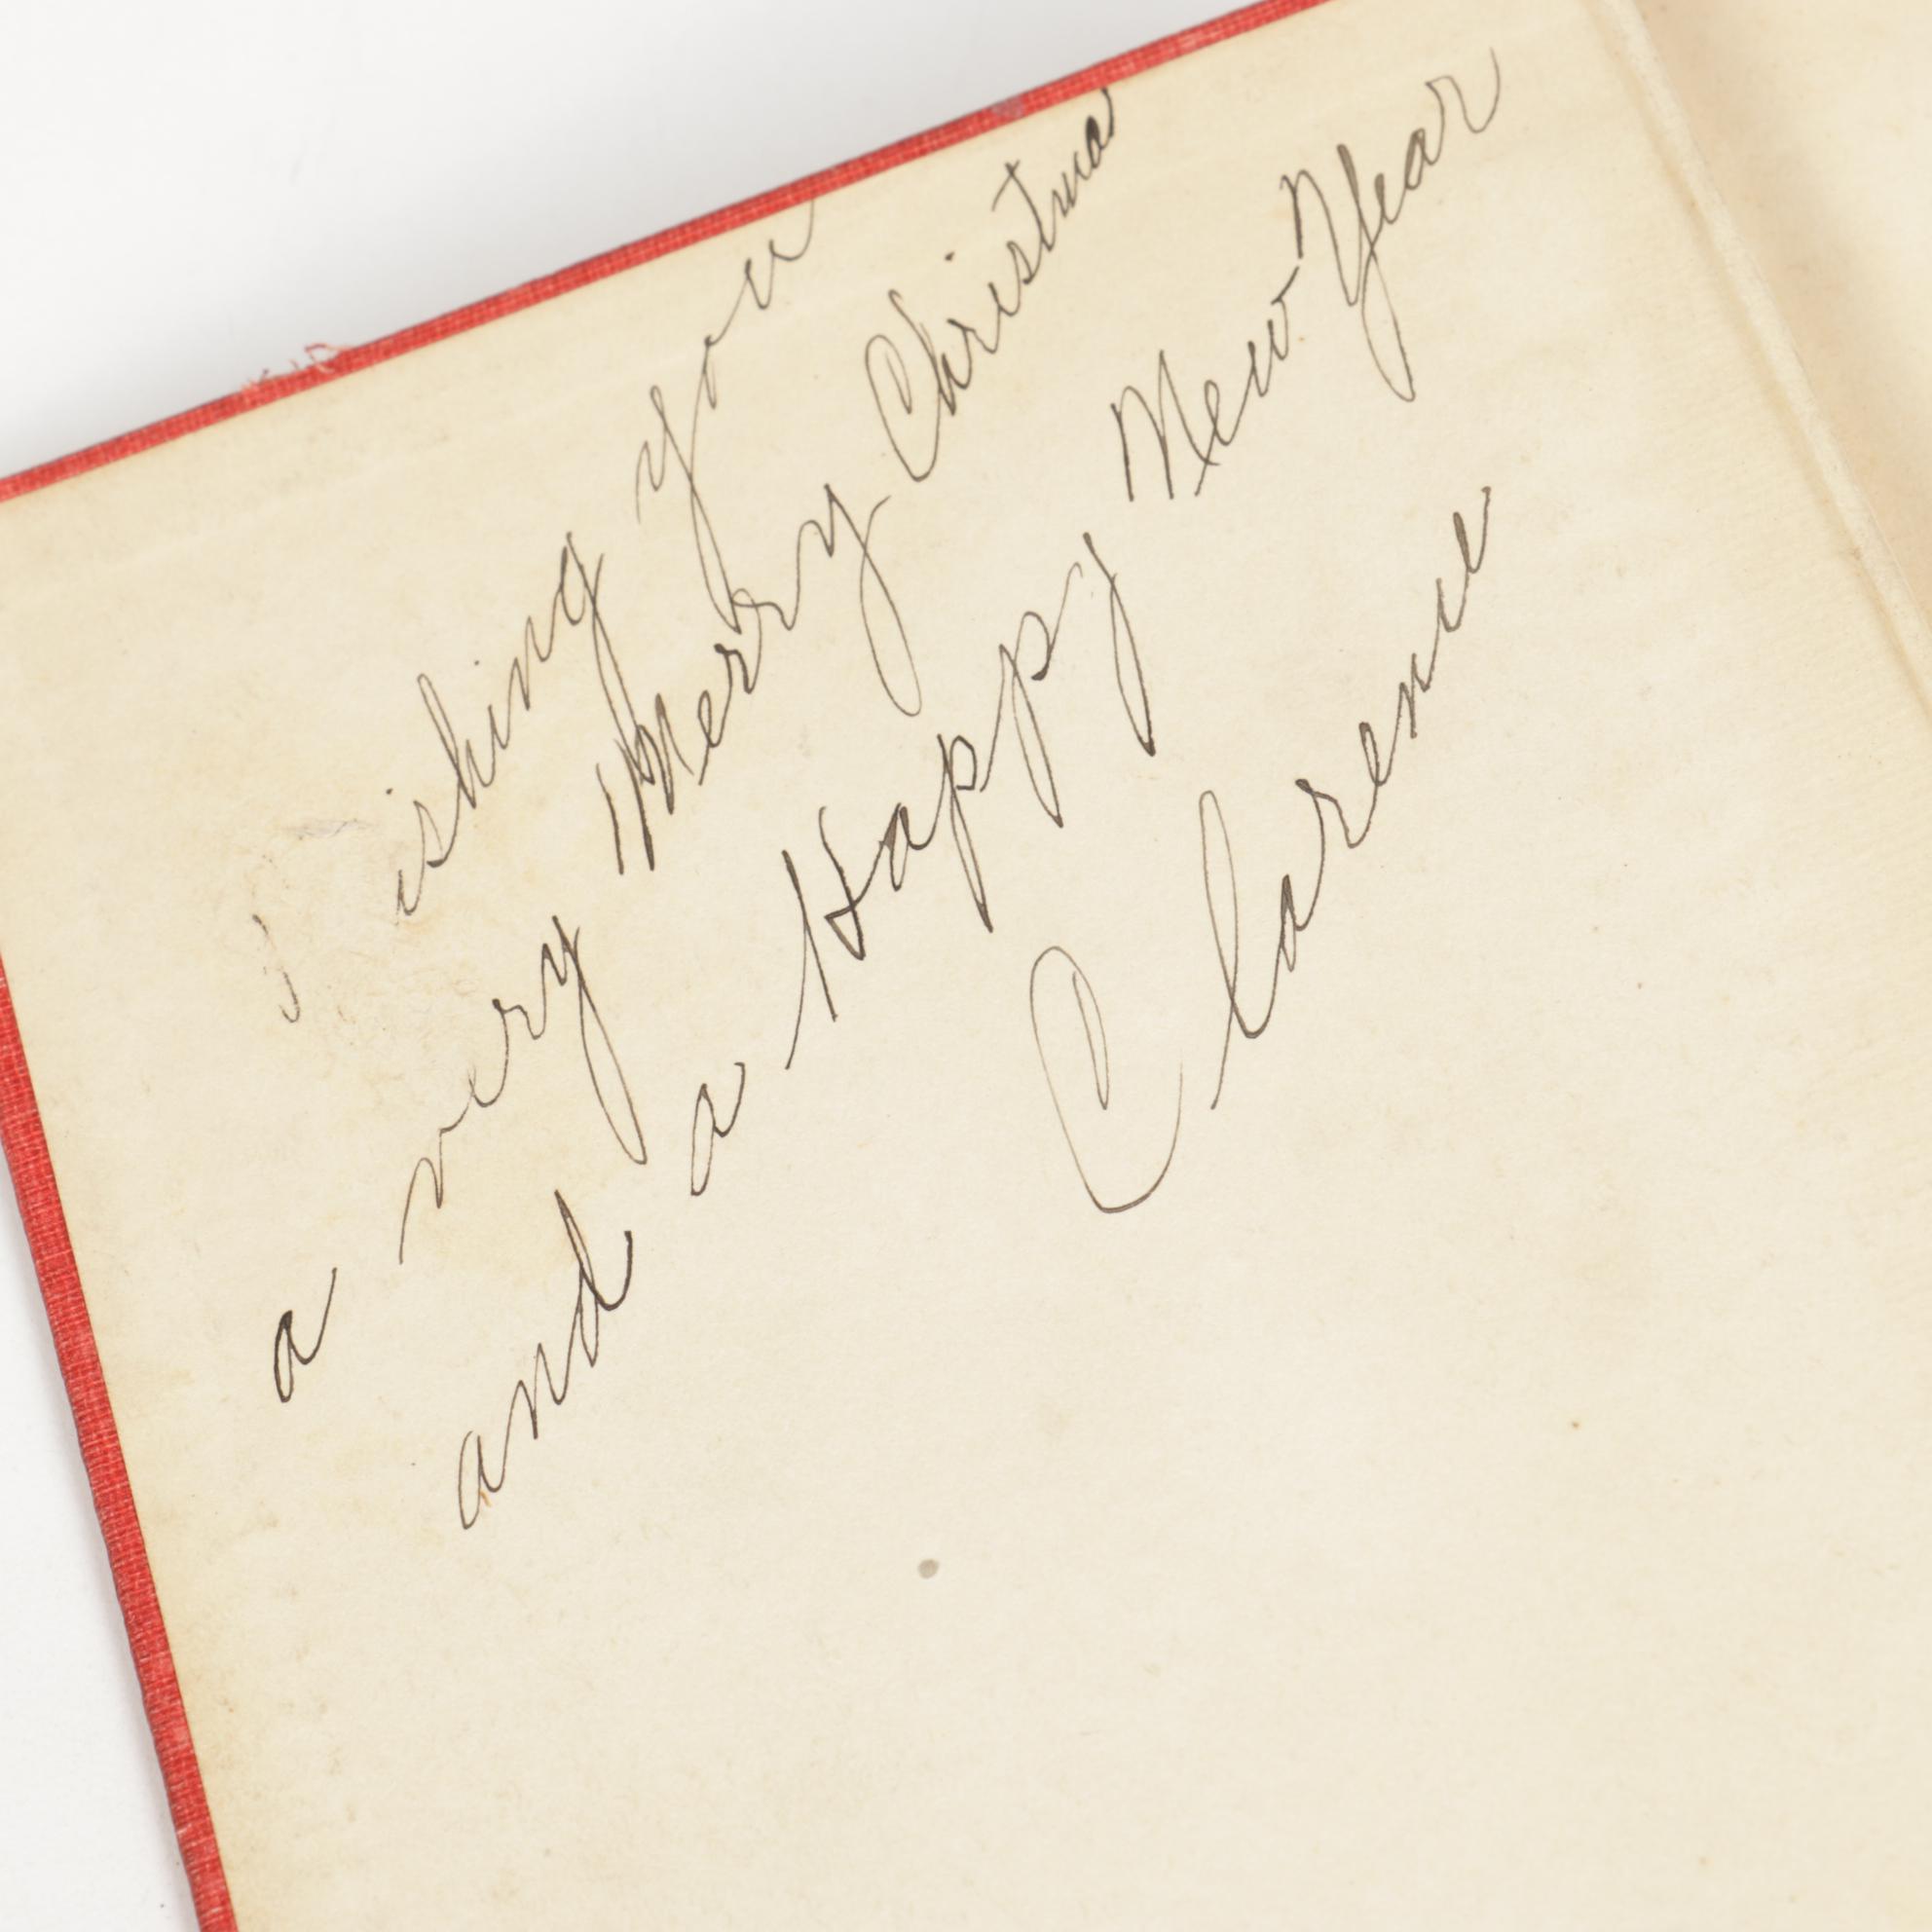 ishing you
a very Merry Christma
and a Happy New Year
Clarence